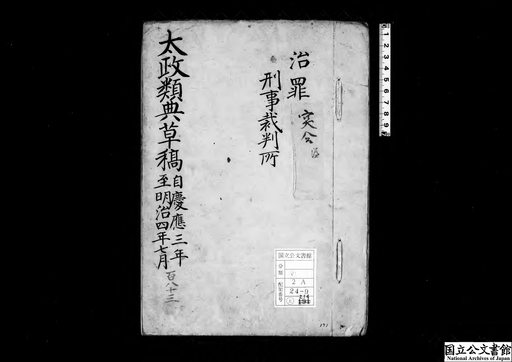 治罪
刑事裁判所
太政類典草稿
自慶應三年
至明治四年七月
百八十三
国立公文書館
分類
配架番号
2A
24-9
191
1 2 3 4 5 6 7 8 9
国立公文書館
National Archives of Japan